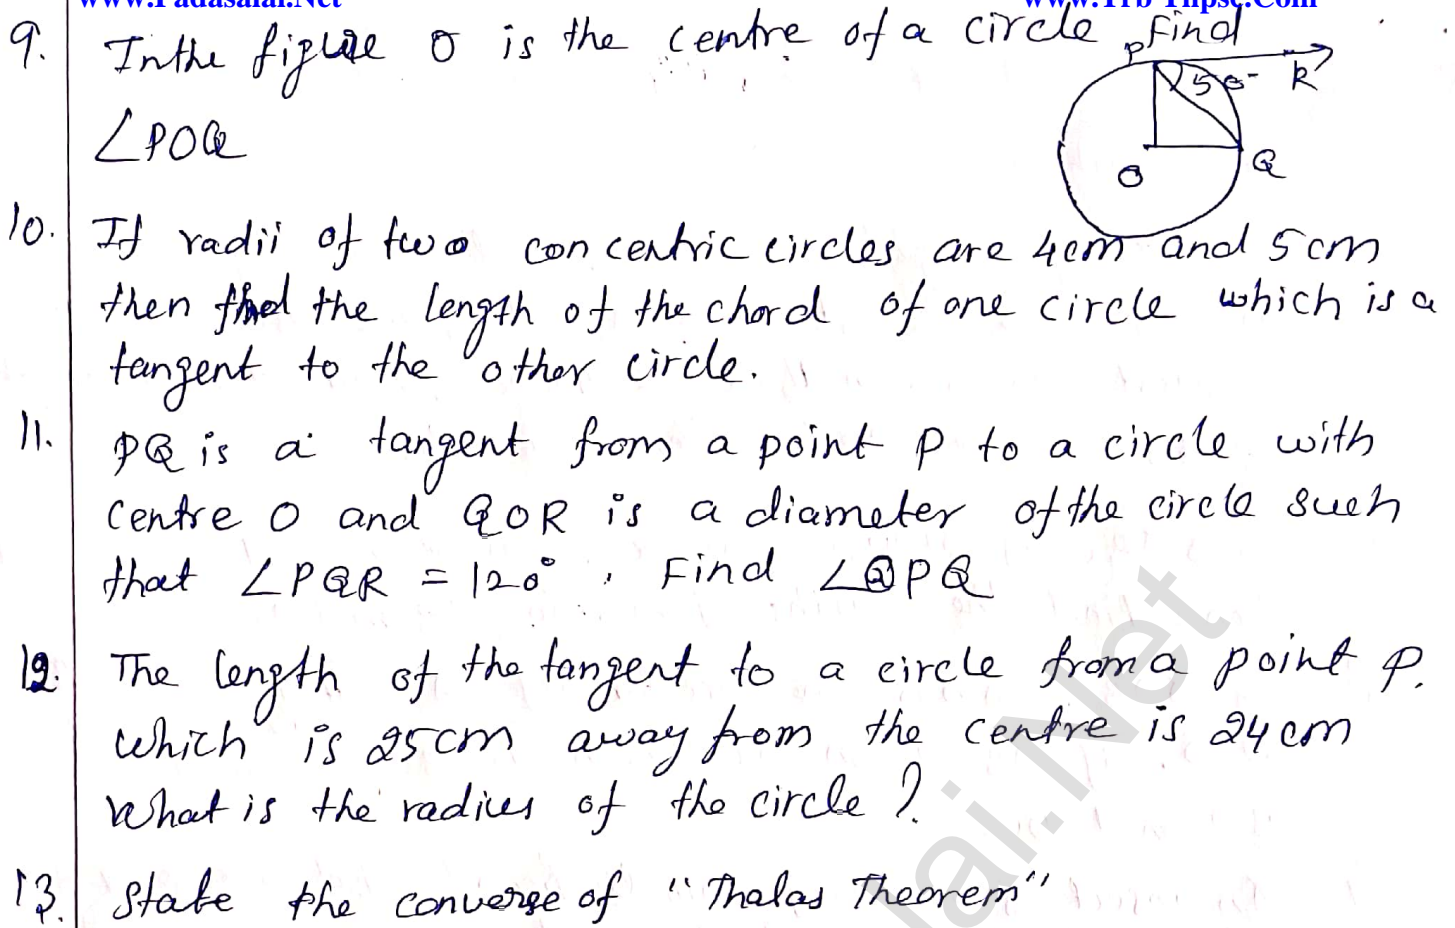 www.Padasalai.Net www.Trb-Tnpsc.Com
9. In the figure O is the centre of a circle, Find
∠POQ
P 50° R
O Q
10. If radii of two concentric circles are 4cm and 5cm
then find the length of the chord of one circle which is a
tangent to the other circle.
11. PQ is a tangent from a point P to a circle with
centre O and QOR is a diameter of the circle such
that ∠PQR = 120°, Find ∠OPQ
12. The length of the tangent to a circle from a point P.
which is 25cm away from the centre is 24cm
What is the radius of the circle ?
13. State the converse of "Thalas Theorem"
lai.Net